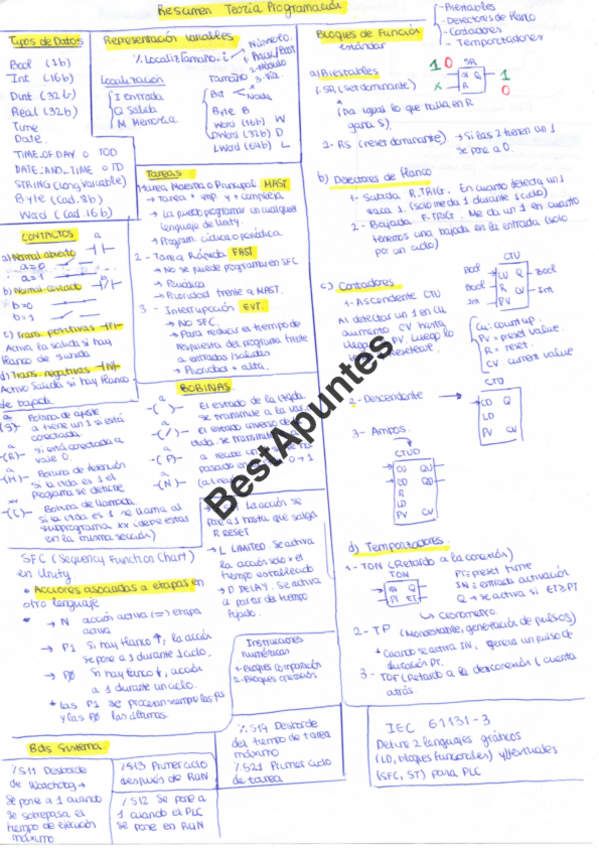 Resumen Teoría Programación
Tipos de Datos
Bool (1b)
Int (16b)
Dint (32b)
Real (32b)
Time
Date
TIME_OF_DAY o TOD
DATE_AND_TIME o TD
STRING (Long Variable)
Byte (Cad. 8b)
Word (Cad. 16b)
Representación variables
% Localiz Tamaño. i
Número.
Localización
I entrada
Q Salida
M Memoria
Tamaño
Bit
Byte B
Word (16b) W
Dword (32b) D
Lword (64b) L
Tareas
1 tarea Maestra o Principal MAST
→ tarea + imp. y + compleja
→ La puedo programar en cualquier
lenguaje de Unity.
→ Program. cíclica o periódica
2 - Tarea Rápida FAST
→ No se puede programar en SFC
→ Periódica
→ Prioridad frente a MAST.
3 - Interrupción EVT.
→ No SFC.
→ Para reducir el tiempo de
respuesta del programa frente
a entradas
→ Prioridad + alta.
CONTACTOS
a) Normal abierto
a=0
a=1
b) Normal cerrado
b=0
b=1
c) Trans. positivas -|P|-
Activa la salida si hay
flanco de subida
d) Trans. negativas -|N|-
Activo Salida si hay flanco
de bajada
BOBINAS
a
-(S)-
Bobina de ajuste
a tiene un 1 si está
conectada
a
-(R)-
si está conectada a
vale 0.
-(H)-
Bobina de detención
Si la ctda es 1 el
programa se detiene
-(C)-
Bobina de llamada
Si la ctda es 1 se llama al
subprograma xx (debe estar
en la misma sección)
a
-( )-
El estado de la ctda.
se transmite a la var.
-(/)-
El estado inverso de la
ctda. se transmite
-(P)-
-(N)-
SFC (Sequency Function Chart)
en Unity
• Acciones asociadas a etapas en
otro lenguaje
→ N acción activa (=) etapa
activa
→ P1 Si hay flanco ↑, la acción
se pone a 1 durante 1 ciclo.
→ P0 Si hay flanco ↓, acción
a 1 durante un ciclo.
* Las P1 se procesan siempre las 1ªs
y las P0 las últimas.
La acción se
pone a 1 hasta que salga
R RESET
→ L LIMITED. Se activa
la acción solo el
tiempo establecido
→ D DELAY. Se activa
a partir del tiempo
fijado.
Instrucciones
numéricas
1- Bloques comparación
2- Bloques operación
Bits Sistema
%S11 Desborde
de Watchdog →
Se pone a 1 cuando
se sobrepasa el
tiempo de ejecución
máximo
%S13 Primer ciclo
después de RUN
%S12 Se pone a
1 cuando el PLC
se pone en RUN
%S19 Desborde
del tiempo de tarea
máximo
%S21 Primer ciclo
de tarea
Bloques de Función
estándar
- Biestables
- Detectores de flanco
- Contadores
- Temporizadores
a) Biestables
1- SR (Set dominante)
(Da igual lo que haya en R
gana S)
2- RS (reset dominante) → Si las 2 tienen un 1
se pone a 0.
1 0 SR
S Q
R
1
0
b) Detectores de flanco
1- Subida R.TRIG. En cuanto detecta un 1
saca 1. (solo me da 1 durante 1 ciclo)
2- Bajada F.TRIG. Me da un 1 en cuanto
tenemos una bajada en la entrada (solo
por un ciclo)
c) Contadores
1- Ascendente CTU
Al detectar un 1 en CU
aumento CV hasta
CTU
Bool CU Q Bool
Bool R CV Int
Int PV
CU: count up.
PV = preset value.
R = reset.
CV current value
2- Descendente
CTD
CD Q
LD
PV CV
3- Ambos
CTUD
CU QU
CD QD
R
LD
PV CV
d) Temporizadores
1- TON (Retardo a la conexión)
TON
IN Q
PT ET
PT = preset time
IN = entrada activación
Q → se activa si ET≥PT
↳ cronómetro
2- TP (Monoestable, generación de pulsos)
* Cuando se activa IN, genera un pulso de
duración PT.
3- TOF (Retardo a la desconexión (cuenta
atrás.
IEC 61131-3
Define 2 lenguajes gráficos
(LD, bloques funcionales) y textuales
(SFC, ST) para PLC
BestApuntes